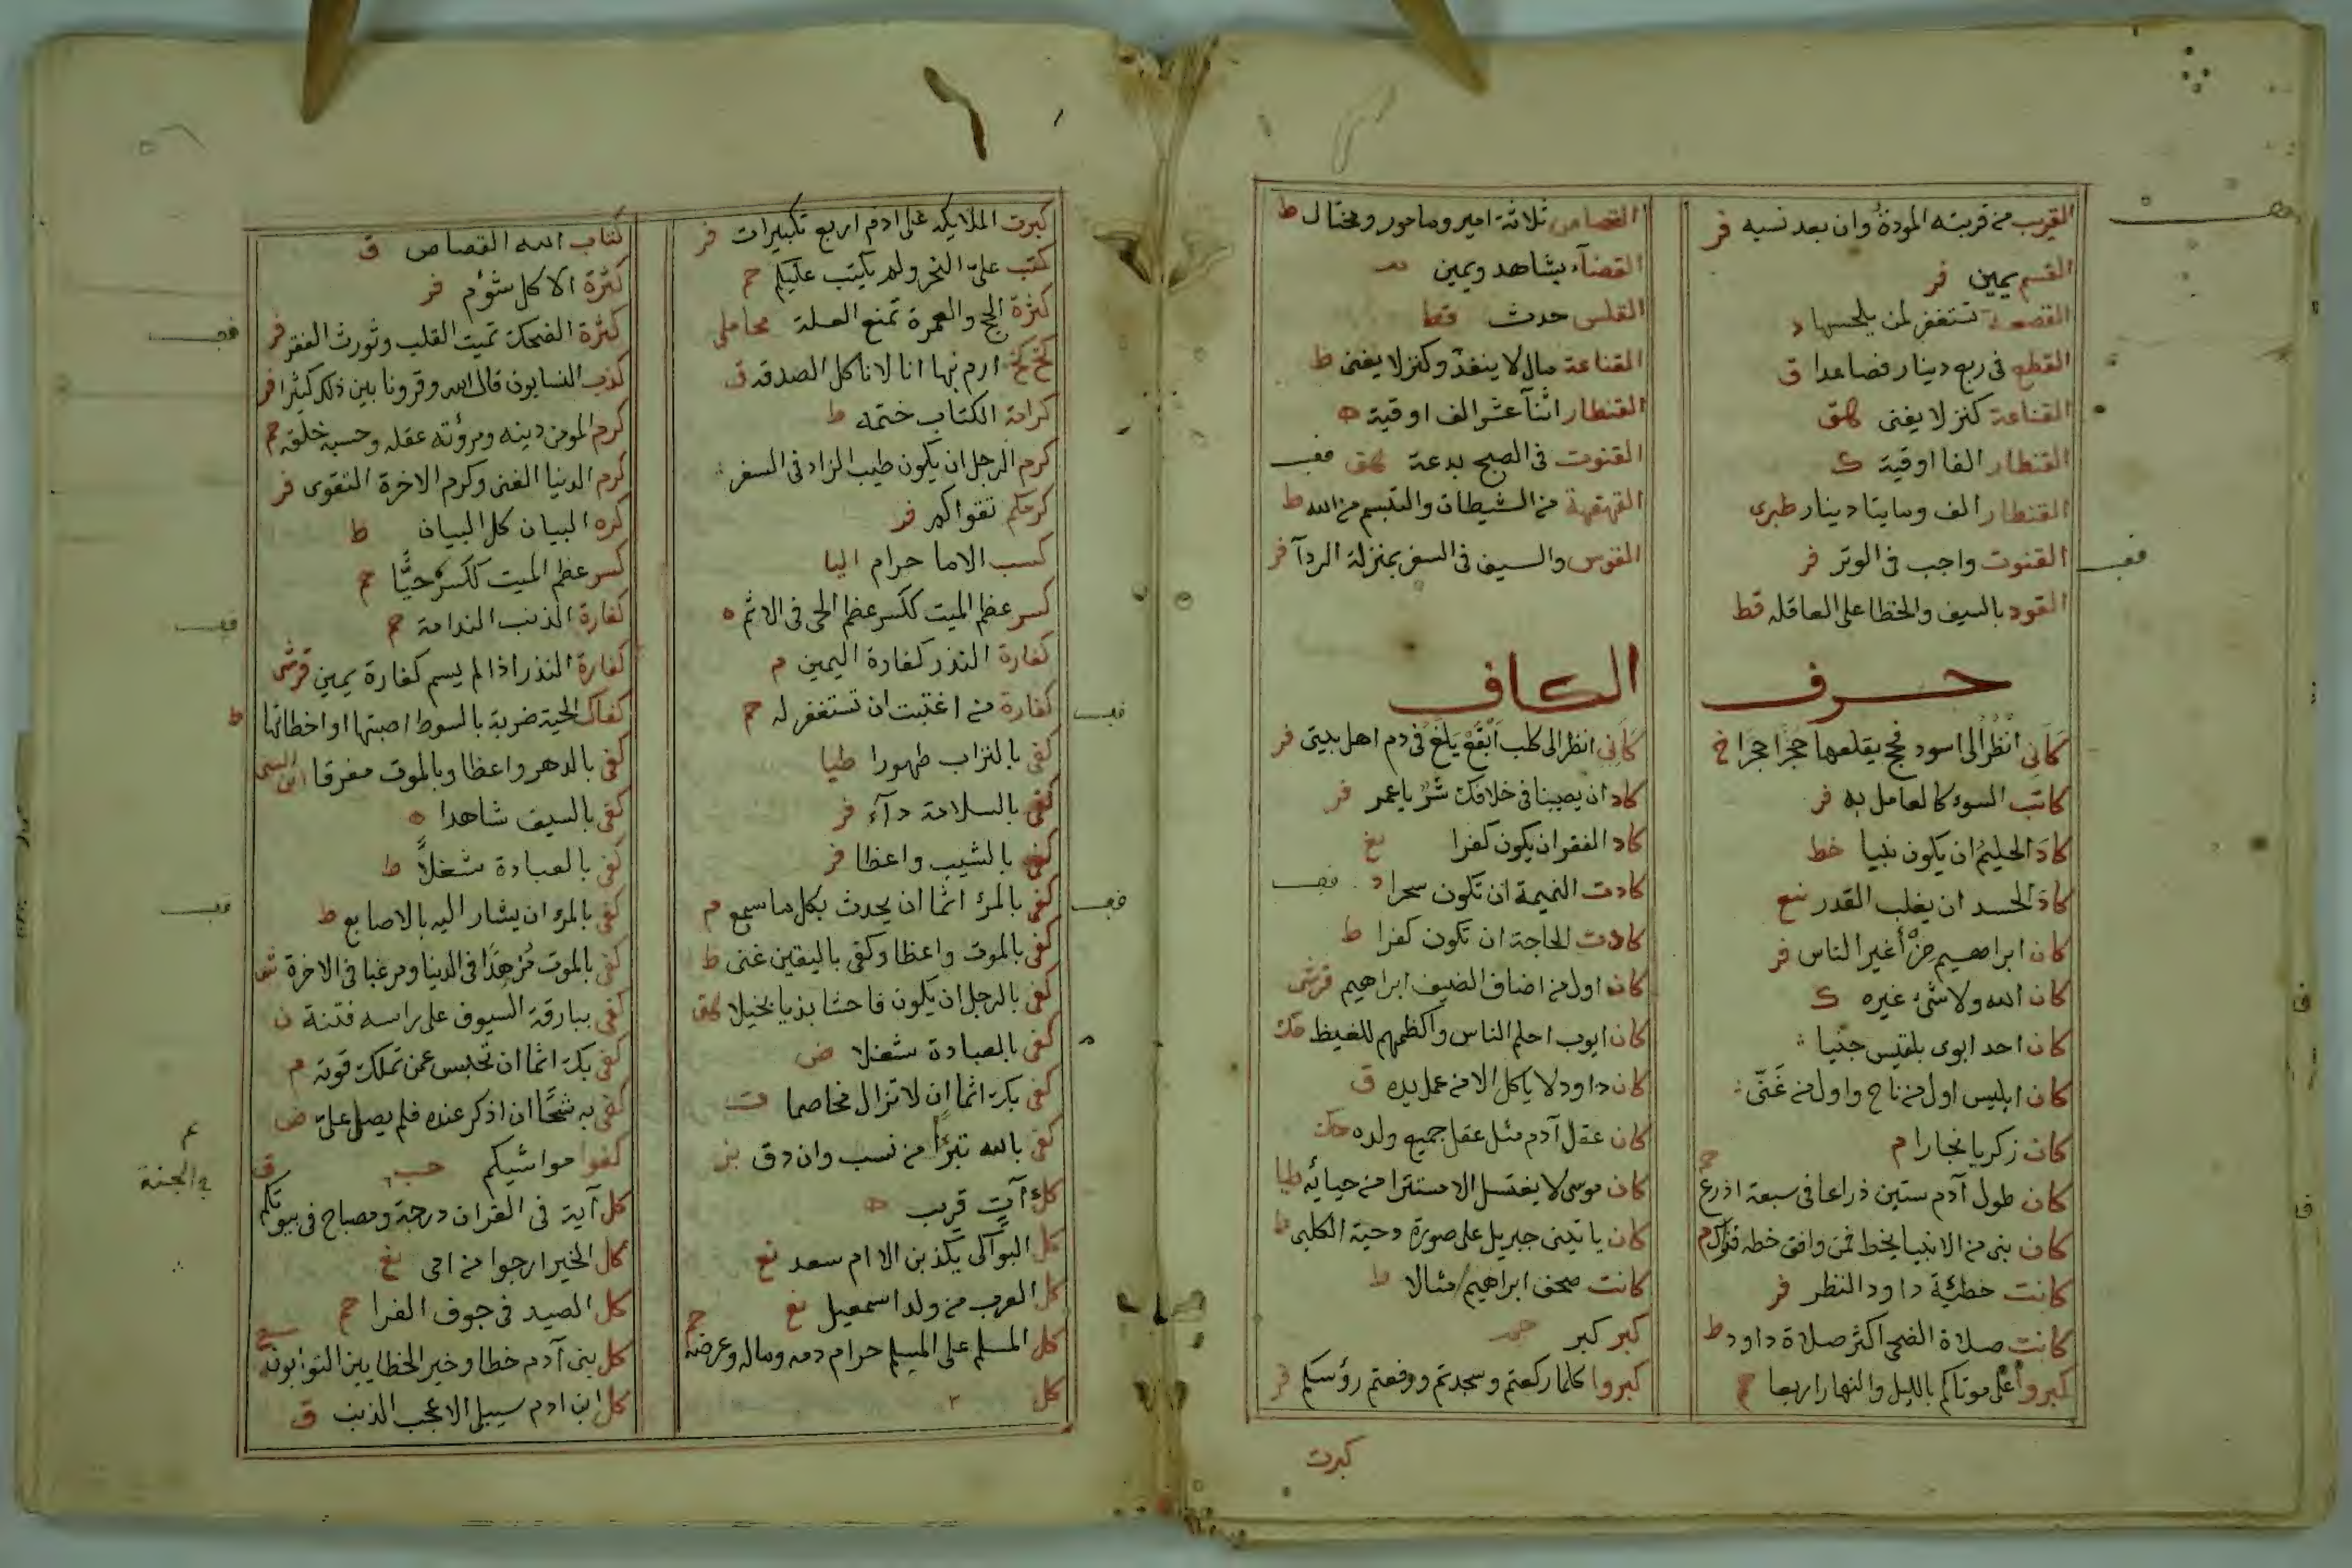 القريب من قربته المودة وان بعد نسبه فر
القسم يمين فر
القصعة تستغفر لمن يلحسها د
القطع في ربع دينار فصاعدا ق
القناعة كنز لا يفنى هق
القنطار الفا اوقية ك
القنطار الف ومايتا دينار طبرى
القنوت واجب في الوتر فر
القود بالسيف والخطا على العاقله قط
القصاص ثلاثة امير ومامور ومختال ط
القضآء بشاهد ويمين
القلس حدث قط
القناعة مال لا ينفد وكنز لا يفنى ط
القنطار اثنآ عشر الف اوقية ه
القنوت في الصبح بدعة هق
القهقهة من الشيطان والتبسم من الله ط
القوس والسيف في السفر بمنزلة الردآ فر
حرف الكاف
كَأَني انْظُرُ الى اسود فحج يقلعها حَجَرًا حَجَرًا خ
كاتب السوء كالعامل به فر
كادَ الحليمُ ان يكون نبيا خط
كادَ الحسد ان يغلب القدر نع
كان ابراهيم من أغير الناس فر
كان الله ولا شيء غيره ك
كان احد ابوى بلقيس جنّيا
كان ابليس اول من ناح واول من غَنَّى
كان زكريا نجارا م
كان طول آدم ستين ذراعا في سبعة اذرع حم
كان نبى من الانبيا يخط فمن وافق خطه فذاك م
كانت خطيّة داود النظر فر
كانت صلاة الضحى اكثر صلاة داود ط
كبروا على موتاكم بالليل والنهار اربعا حم
كَأَنى انظر الى كلب اَبْقَعْ يَلَغُ في دم اهل بيتى فر
كاد ان يصيبنا في خلافك شَرٌّ يا عمر فر
كاد الفقر ان يكون كفرا نع
كادت النميمة ان تكون سحرا د
كادت الحاجة ان تكون كفرا ط
كان اول من اضاف الضيف ابراهيم قرشى
كان ايوب احلم الناس واكظمهم للغيظ حك
كان داود لا ياكل الا من عمل يده ق
كان عقل آدم مثل عقل جميع ولده حك
كان موسى لا يغتسل الا مستترا من حيائه طيا
كان ياتينى جبريل على صورة دحية الكلبى ط
كانت صحف ابراهيم امثالا ط
كبر كبر
كبروا كلما ركعتم وسجدتم ورفعتم رؤسكم فر
كبرت
كبرت الملايكة على ادم اربع تكبيرات فر
كتب علىّ النحر ولم يكتب عليكم حم
كثرة الحج والعمرة تمنع العيلة محاملى
كخ كخ ارم بها انا لا ناكل الصدقة ق
كرامة الكتاب ختمه ط
كرم الرجل ان يكون طيب الزاد في السفر
كرمكم تقواكم فر
كسب الاما حرام اليا
كسر عظم الميت ككسر عظم الحى في الاثم ه
كفارة النذر كفارة اليمين م
كفارة من اغتبت ان تستغفر له حم
كفى بالتراب طهورا طيا
كفى بالسلامة دآء فر
كفى بالشيب واعظا فر
كفى بالمرء اثمًا ان يحدث بكل ما سمع م
كفى بالموت واعظا وكفى باليقين غنى ط
كفى بالرجل ان يكون فاحشا بذيا بخيلا هق
كفى بالعبادة شغلا ض
كفى بك اثما ان لا تزال مخاصما ت
كفى بالله تبرّأً من نسب وان دق
كل آتٍ قريب ه
كل البواكى يكذبن الا ام سعد نع
كل العرب من ولد اسمعيل نع
كل المسلم على المسلم حرام دمه وماله وعرضه حم
كل
كتاب الله القصاص ق
كثرة الاكل شؤم فر
كثرة الضحك تميت القلب وتورث الفقر فر
كذب النسابون قال الله وقرونا بين ذلك كثيرا فر
كرم المومن دينه ومرؤته عقله وحسبه خلقه حم
كرم الدنيا الغنى وكرم الاخرة التقوى فر
كره البيان كل البيان ط
كسر عظم الميت ككسره حيًّا حم
كفارة الذنب الندامة حم
كفارة النذر اذا لم يسم كفارة يمين قرشى
كفاك الحية ضربة بالسوط اصبتها او اخطاتها ط
كفى بالدهر واعظا وبالموت مفرقا ابن السنى
كفى بالسيف شاهدا ه
كفى بالعبادة شغلاً ط
كفى بالمرء ان يشار اليه بالاصابع ط
كفى بالموت مُزهّدًا في الدنيا ومرغبا في الاخرة ش
كفى ببارقة السيوف على راسه فتنة ن
كفى بك اثما ان تحبس عن تملك قوته م
كفى به شحًّا ان اذكر عنده فلم يصل علىّ ض
كفوا مواشيكم
كل آية في القران درجة ومصباح في بيوتكم
في الجنة
كل الخير ارجوا من امى نع
كل الصيد في جوف الفرا
كل بنى آدم خطا وخير الخطايين التوابون
كل ابن ادم سيبلى الا عجب الذنب ق